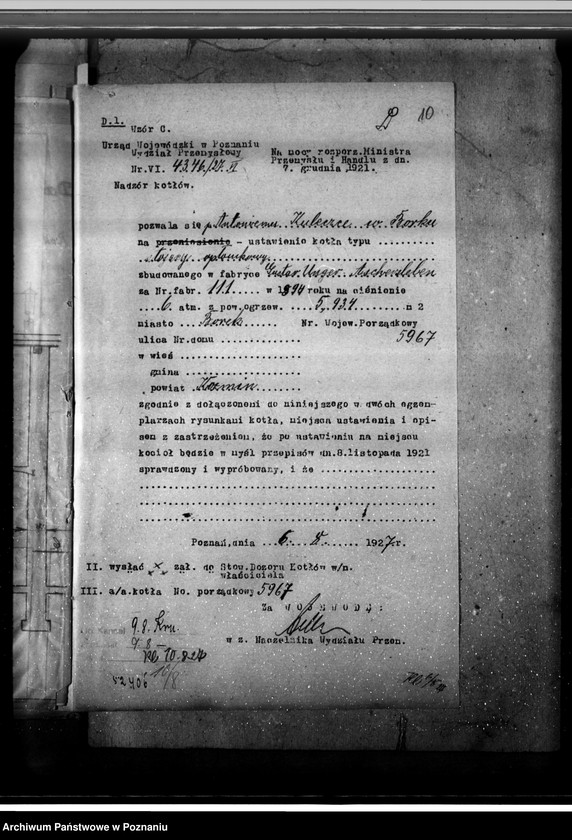 D.1.
Wzór C.
10
Urząd Wojewódzki w Poznaniu
Wydział Przemysłowy
Na mocy rozporz. Ministra
Przemysłu i Handlu z dn.
7. grudnia 1921.
Nr. VI. 4376/27. VI
Nadzór kotłów.
pozwala się p. Antoniemu Kuleszce w Borku
na przeniesienie - ustawienie kotła typu ..........
stojący opłomkowy
zbudowanego w fabryce Gustav Unger Aschersleben
za Nr.fabr. 111 w 1894 roku na ciśnienie
6 atm. z pow.ogrzew. 5,934 m 2
miasto ... Borek ...... Nr. Wojew.Porządkowy
ulica Nr.domu .............. 5967
w wieś ....................
gmina ....................
powiat Koźmin
zgodnie z dołączonemi do niniejszego w dwóch egzem-
plarzach rysunkami kotła, miejsca ustawienia i opi-
sem z zastrzeżeniem, że po ustawieniu na miejscu
kocioł będzie w myśl przepisów dn.8.listopada 1921
sprawdzony i wypróbowany, i że ....................
Poznań, dnia ...6. 8. ...... 1927r.
II. wysłać x zał. do Stow.Dozoru Kotłów w/m.
właściciela
III. a/a.kotła No. porządkowy 5967
Za WOJEWODĘ:
w z. Naczelnika Wydziału Przem.
9.8. Kru.
9.8
10.8.27
10/8
52406
Archiwum Państwowe w Poznaniu